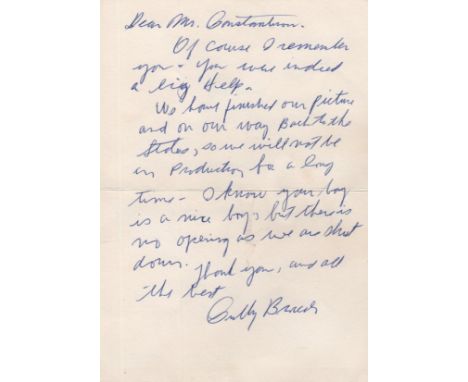 Dear Mr. Constantine.
Of course I remember
you - you were indeed
a big Help -
We have finished our picture
and on our way Back to the
States, so we will not be
in Production for a long
time - I know your boy
is a nice boy, but there is
no opening as we are shut
down. Thank you, and all
the best
Cubby